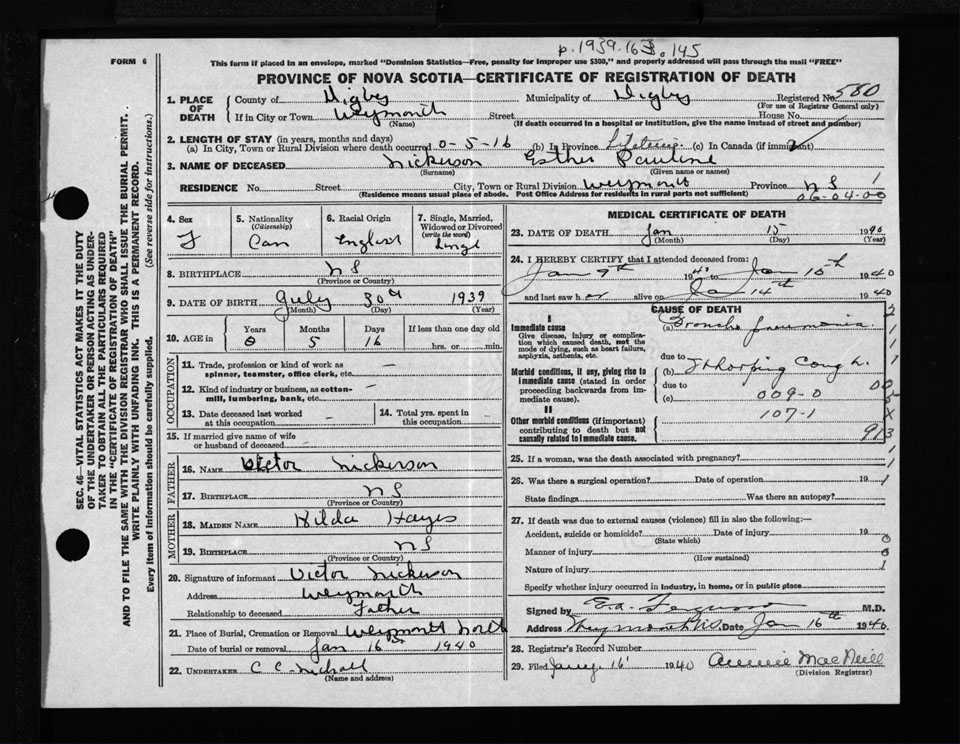 p. 1939.163.145
FORM 6
This form if placed in an envelope, marked "Dominion Statistics—Free, penalty for improper use $300," and properly addressed will pass through the mail "FREE"
PROVINCE OF NOVA SCOTIA—CERTIFICATE OF REGISTRATION OF DEATH
SEC. 46—VITAL STATISTICS ACT MAKES IT THE DUTY
OF THE UNDERTAKER OR PERSON ACTING AS UNDER-
TAKER TO OBTAIN ALL THE PARTICULARS REQUIRED
IN THE "CERTIFICATE OF REGISTRATION OF DEATH"
AND TO FILE THE SAME WITH THE DIVISION REGISTRAR WHO SHALL ISSUE THE BURIAL PERMIT.
WRITE PLAINLY WITH UNFADING INK. THIS IS A PERMANENT RECORD.
Every item of information should be carefully supplied. (See reverse side for instructions.)
1. PLACE OF DEATH County of Digby Municipality of Digby Registered No. 580
(For use of Registrar General only)
If in City or Town Weymouth Street House No.
(Name) (If death occurred in a hospital or institution, give the name instead of street and number)
2. LENGTH OF STAY (in years, months and days)
(a) In City, Town or Rural Division where death occurred 0-5-16 (b) In Province Lifetime (c) In Canada (if immigrant)
3. NAME OF DECEASED Nickerson Esther Pauline
(Surname) (Given name or names)
RESIDENCE No. Street City, Town or Rural Division Weymouth Province NS 1
(Residence means usual place of abode. Post Office Address for residents in rural parts not sufficient) 06-04-00
4. Sex F
5. Nationality (Citizenship) Can
6. Racial Origin English
7. Single, Married, Widowed or Divorced (write the word) Singl
8. BIRTHPLACE NS
(Province or Country)
9. DATE OF BIRTH July 30th 1939
(Month) (Day) (Year)
10. AGE in Years Months Days If less than one day old
0 5 16 hrs. or min.
OCCUPATION
11. Trade, profession or kind of work as spinner, teamster, office clerk, etc. —
12. Kind of industry or business, as cotton-mill, lumbering, bank, etc. —
13. Date deceased last worked at this occupation —
14. Total yrs. spent in this occupation —
15. If married give name of wife or husband of deceased
FATHER
16. NAME Victor Nickerson
17. BIRTHPLACE NS
(Province or Country)
MOTHER
18. MAIDEN NAME Hilda Hayes
19. BIRTHPLACE NS
(Province or Country)
20. Signature of informant Victor Nickerson
Address Weymouth
Relationship to deceased Father
21. Place of Burial, Cremation or Removal Weymouth North
Date of burial or removal Jan 16th 1940
22. UNDERTAKER C C
(Name and address)
MEDICAL CERTIFICATE OF DEATH
23. DATE OF DEATH Jan 15 1940
(Month) (Day) (Year)
24. I HEREBY CERTIFY that I attended deceased from:
Jan 9th 1940 to Jan 15th 1940
and last saw her alive on Jan 14th 1940
CAUSE OF DEATH
I
Immediate cause
Give disease, injury or complication which caused death, not the mode of dying, such as heart failure, asphyxia, asthenia, etc.
(a) Broncho pneumonia
due to
Morbid conditions, if any, giving rise to immediate cause (stated in order proceeding backwards from immediate cause).
(b) Whooping Cough
due to
(c) 009-0
II
107-1
Other morbid conditions (if important) contributing to death but not causally related to immediate cause.
913
25. If a woman, was the death associated with pregnancy?
26. Was there a surgical operation? Date of operation 19
State findings Was there an autopsy?
27. If death was due to external causes (violence) fill in also the following:—
Accident, suicide or homicide? Date of injury 19
(State which)
Manner of injury
(How sustained)
Nature of injury
Specify whether injury occurred in industry, in home, or in public place
Signed by E.A. Ferguson M.D.
Address Weymouth NS Date Jan 16th 1940
28. Registrar's Record Number
29. Filed Jany. 16 1940 Annie MacNeill
(Division Registrar)